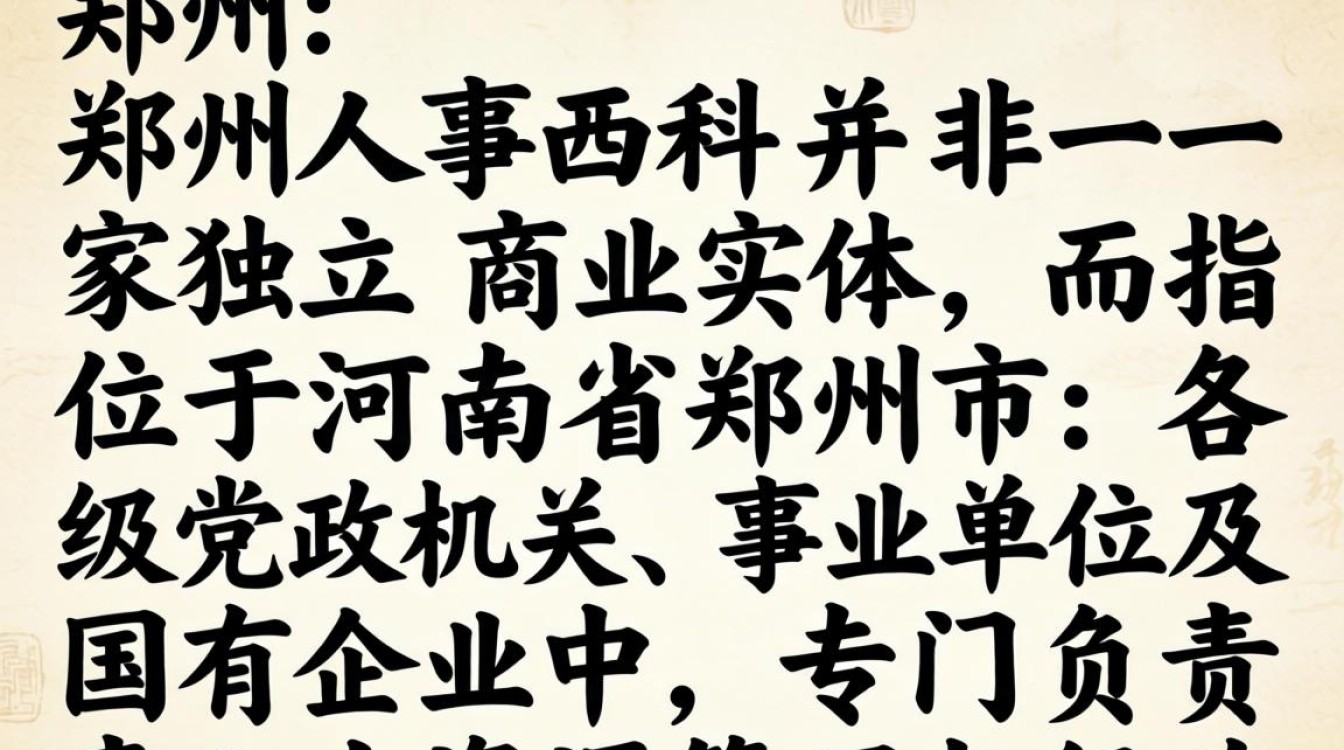 郑州：
郑州人事西科并非一一
家独立 商业实体，而指
位于河南省郑州市：各
级党政机关、事业单位及
国有企业中，专门负责